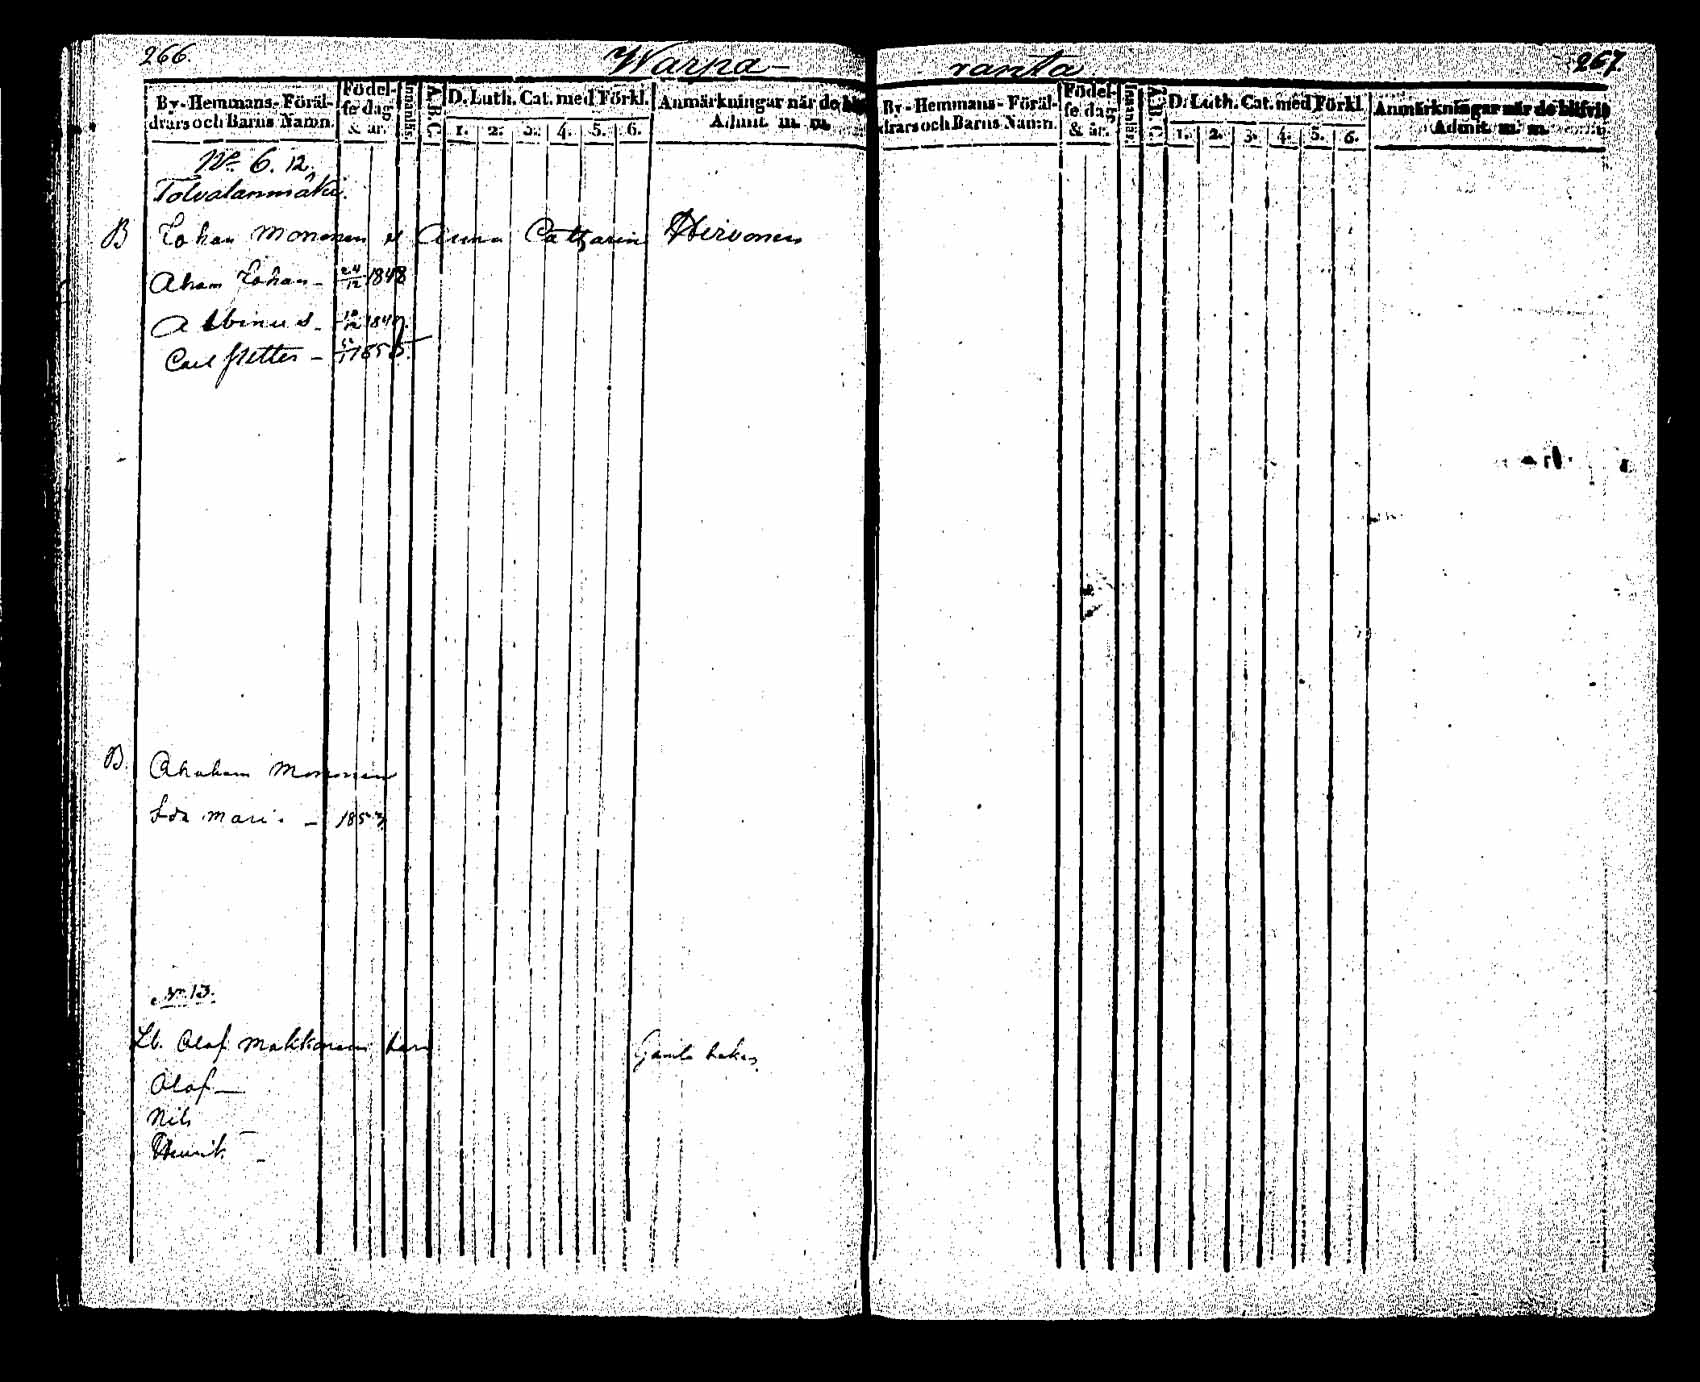 266.
Warpa-
By-Hemmans-Föräl-
drars och Barns Namn.
Födel-
se dag
& år.
Innanläs.
A.B.C.
D. Luth. Cat. med Förkl.
1. 2. 3. 4. 5. 6.
Anmärkningar när de
Admit. m. m.
No 6. 12.
Tolvalanmäki.
B Johan Mononen & Anna Catharin Hirvonen
Abam Johan - 24/12 1848
Albinus -
Carl Petter -
B. Abraham Mononen
Ida Mari - 1853
No 13.
Lb. Olof Makkonens barn
Gamla boken
Olof -
Nils -
Henrik -
ranta
267.
By-Hemmans-Föräl-
drars och Barns Namn.
Födel-
se dag
& år.
Innanläs.
A.B.C.
D. Luth. Cat. med Förkl.
1. 2. 3. 4. 5. 6.
Anmärkningar när de blifvit
Admit. m. m.